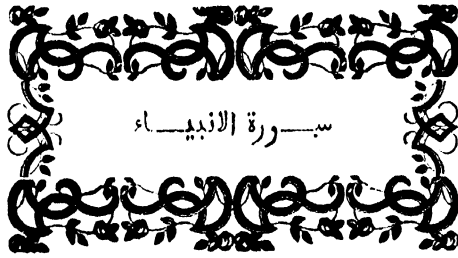 سورة الانبياء